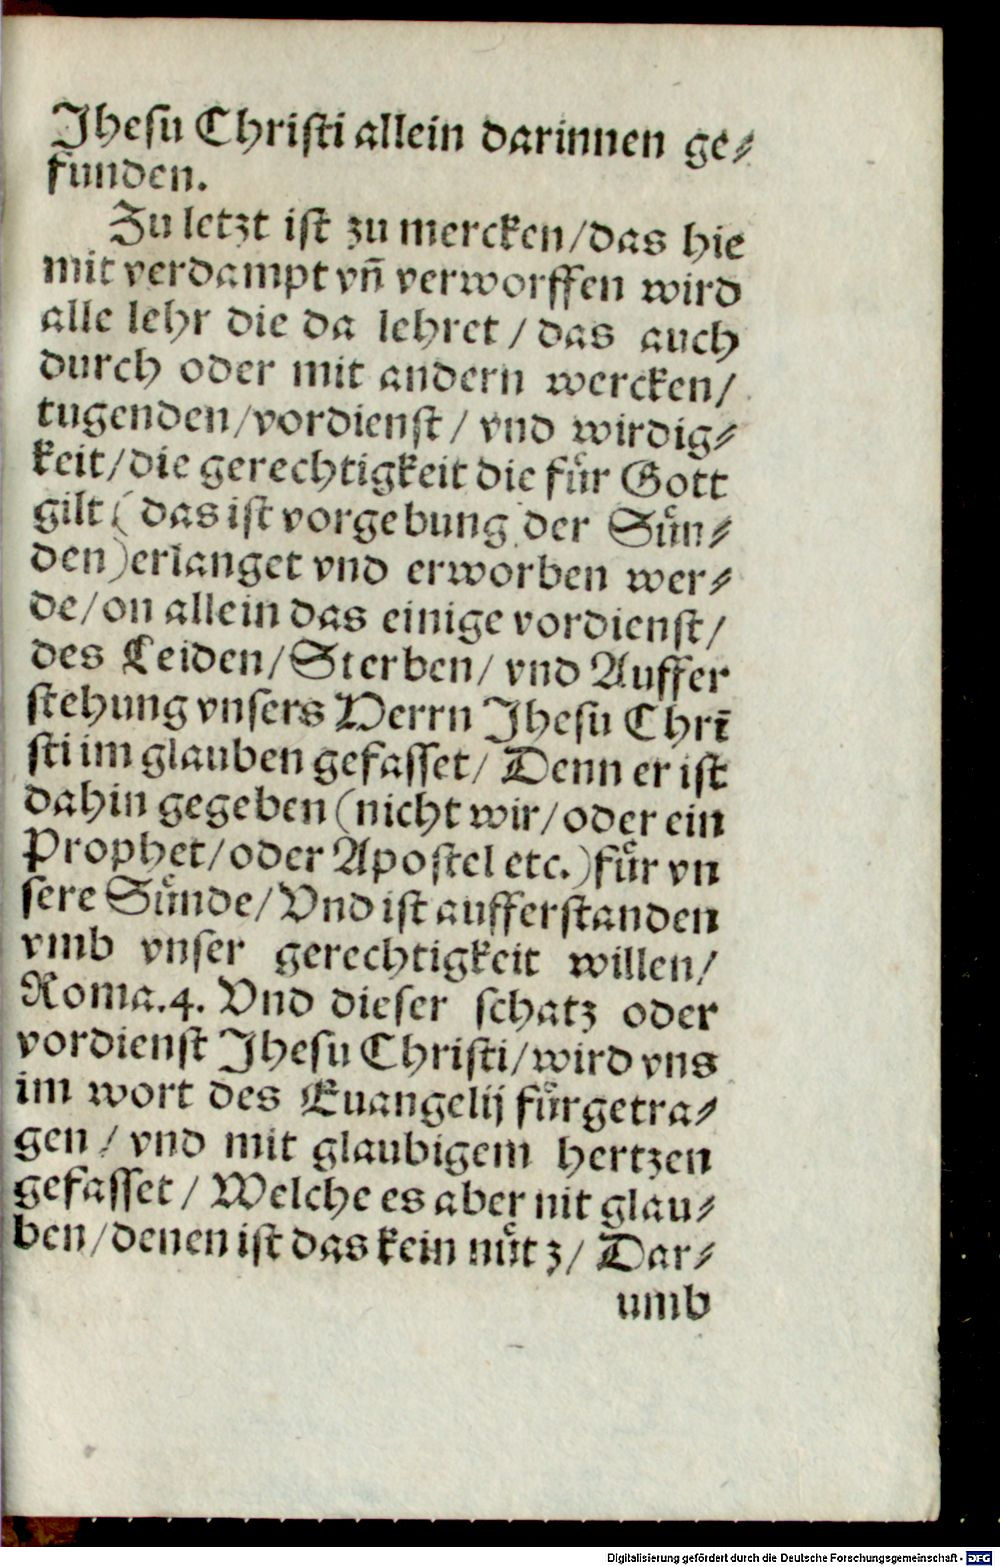 Jhesu Christi allein darinnen ge⸗
funden.
Zu letzt ist zu mercken/das hie
mit verdampt vñ verworffen wird
alle lehr die da lehret / das auch
durch oder mit andern wercken/
tugenden/vordienst / vnd wirdig⸗
keit/die gerechtigkeit die fuͤr Gott
gilt ( das ist vorgebung der Suͤn⸗
den)erlanget vnd erworben wer⸗
de/on allein das einige vordienst/
des Leiden/Sterben/ vnd Auffer
stehung vnsers Herrn Jhesu Chrī
sti im glauben gefasset/ Denn er ist
dahin gegeben (nicht wir/oder ein
Prophet/oder Apostel etc.)fuͤr vn
sere Suͤnde/Vnd ist aufferstanden
vmb vnser gerechtigkeit willen/
Roma.4. Vnd dieser schatz oder
vordienst Jhesu Christi/wird vns
im wort des Euangelij fuͤrgetra⸗
gen / vnd mit glaubigem hertzen
gefasset / Welche es aber nit glau⸗
ben/denen ist das kein nuͤtz/ Dar⸗
umb
Digitalisierung gefördert durch die Deutsche Forschungsgemeinschaft - DFG